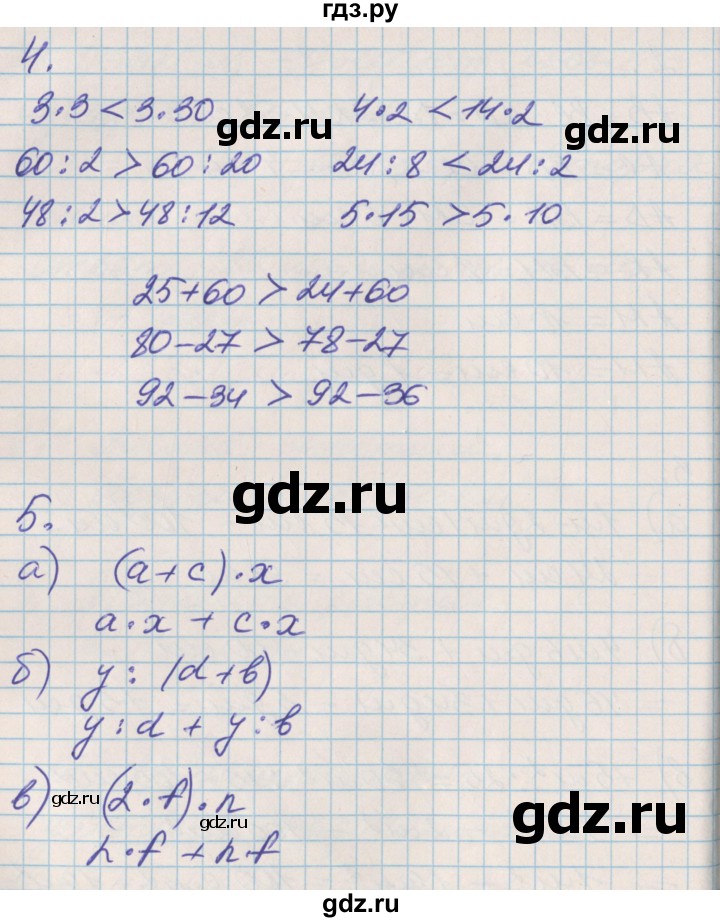 гдз.ру
4.
3·3 < 3·30 4·2 < 14·2
gdz.ru gdz.ru
60:2 > 60:20 24:8 < 24:2
48:2 > 48:12 5·15 > 5·10
25+60 > 24+60
80-27 > 78-27
92-34 > 92-36
gdz.ru
5.
а) (a+c)·x
a·x + c·x
б) y : (d+b)
y:d + y:b
в) (2·f)·n
gdz.ru gdz.ru
gdz.ru
n·f + n·f
gdz.ru